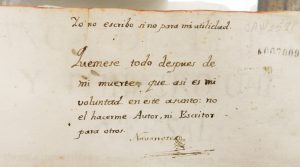 Yo no escribo sino para mi utilidad.
Quemese todo despues de
mi muerte, que asi es mi
voluntad en este asunto: no
el hacerme Autor, ni Escritor
para otros.